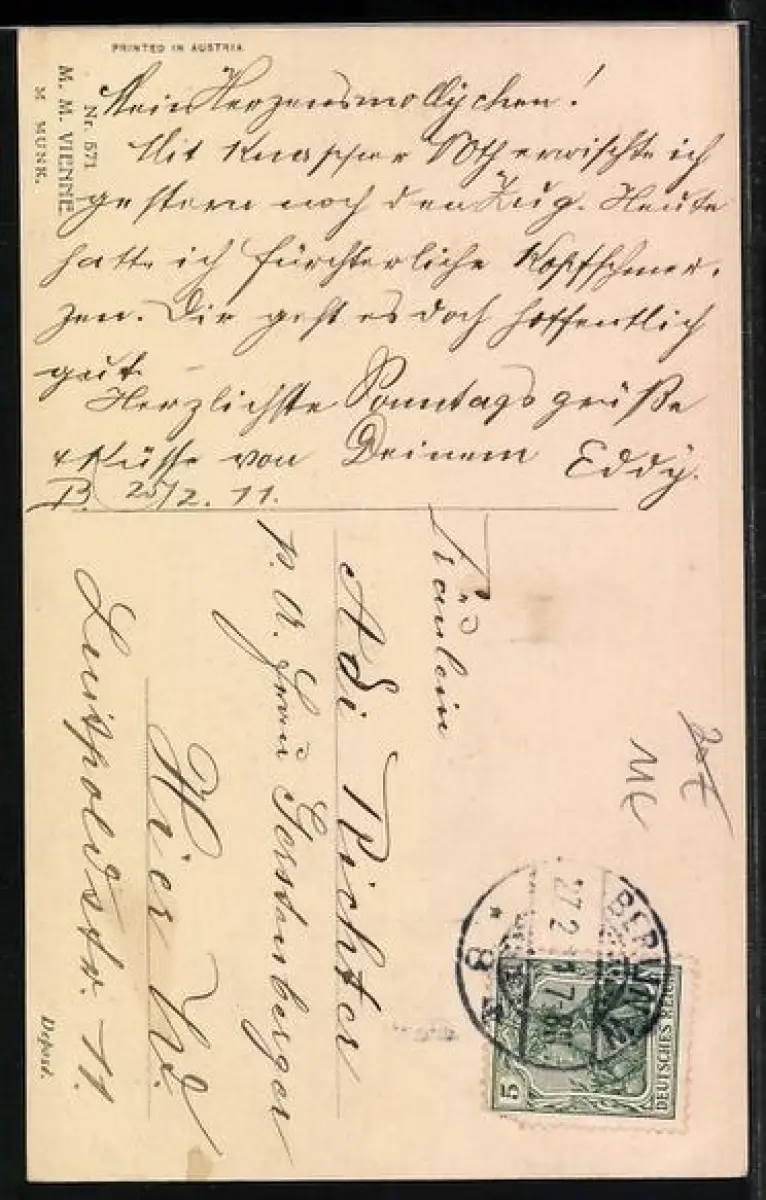 PRINTED IN AUSTRIA
Nr. 571
M. M. VIENNE
M. MUNK.
Mein Herzensmollychen!
Mit knapper Noth erwischte ich
gestern noch den Zug. Heute
hatte ich fürchterliche Kopfschmer-
zen. Dir geht es doch hoffentlich
gut.
Herzlichste Sonntagsgrüße
& Küsse von Deinem Eddy.
B. 25/2. 11.
Fräulein
Adi Richter
p. A. Frau Gerstenberger
Hier W.
Luitpoldstr. 11.
Depost.
BERLIN W
27.2.
8
5
DEUTSCHES REICH